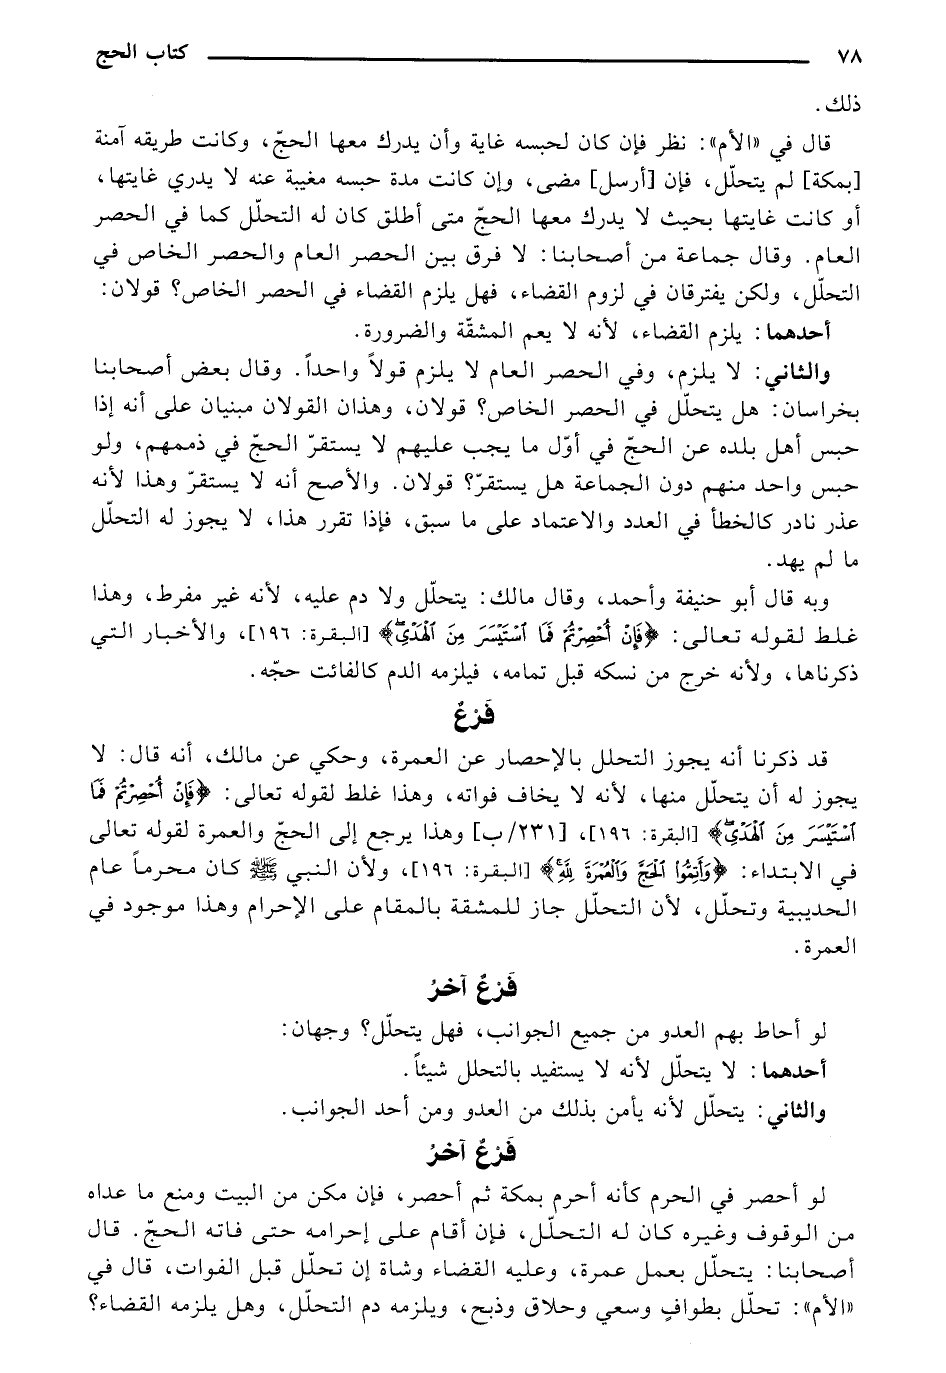 ٧٨ كتاب الحج
ذلك.
قال في «الأم»: نظر فإن كان لحبسه غاية وأن يدرك معها الحجّ، وكانت طريقه آمنة
[بمكة] لم يتحلّل، فإن [أرسل] مضى، وإن كانت مدة حبسه مغيبة عنه لا يدري غايتها،
أو كانت غايتها بحيث لا يدرك معها الحجّ متى أطلق كان له التحلّل كما في الحصر
العام. وقال جماعة من أصحابنا: لا فرق بين الحصر العام والحصر الخاص في
التحلّل، ولكن يفترقان في لزوم القضاء، فهل يلزم القضاء في الحصر الخاص؟ قولان:
أحدهما: يلزم القضاء، لأنه لا يعم المشقّة والضرورة.
والثاني: لا يلزم، وفي الحصر العام لا يلزم قولاً واحداً. وقال بعض أصحابنا
بخراسان: هل يتحلّل في الحصر الخاص؟ قولان، وهذان القولان مبنيان على أنه إذا
حبس أهل بلده عن الحجّ في أوّل ما يجب عليهم لا يستقرّ الحجّ في ذممهم، ولو
حبس واحد منهم دون الجماعة هل يستقرّ؟ قولان. والأصح أنه لا يستقرّ وهذا لأنه
عذر نادر كالخطأ في العدد والاعتماد على ما سبق، فإذا تقرر هذا، لا يجوز له التحلّل
ما لم يهد.
وبه قال أبو حنيفة وأحمد، وقال مالك: يتحلّل ولا دم عليه، لأنه غير مفرط، وهذا
غلط لقوله تعالى: ﴿فَإِنْ أُحْصِرْتُمْ فَمَا اسْتَيْسَرَ مِنَ الْهَدْيِ﴾ [البقرة: ١٩٦]، والأخبار التي
ذكرناها، ولأنه خرج من نسكه قبل تمامه، فيلزمه الدم كالفائت حجّه.
فَرْعٌ
قد ذكرنا أنه يجوز التحلل بالإحصار عن العمرة، وحكي عن مالك، أنه قال: لا
يجوز له أن يتحلّل منها، لأنه لا يخاف فواته، وهذا غلط لقوله تعالى: ﴿فَإِنْ أُحْصِرْتُمْ فَمَا
اسْتَيْسَرَ مِنَ الْهَدْيِ﴾ [البقرة: ١٩٦]، [٢٣١/ب] وهذا يرجع إلى الحجّ والعمرة لقوله تعالى
في الابتداء: ﴿وَأَتِمُّوا الْحَجَّ وَالْعُمْرَةَ لِلَّهِ﴾ [البقرة: ١٩٦]، ولأن النبي ﷺ كان محرماً عام
الحديبية وتحلّل، لأن التحلّل جاز للمشقة بالمقام على الإحرام وهذا موجود في
العمرة.
فَرْعٌ آخرُ
لو أحاط بهم العدو من جميع الجوانب، فهل يتحلّل؟ وجهان:
أحدهما: لا يتحلّل لأنه لا يستفيد بالتحلل شيئاً.
والثاني: يتحلّل لأنه يأمن بذلك من العدو ومن أحد الجوانب.
فَرْعٌ آخرُ
لو أحصر في الحرم كأنه أحرم بمكة ثم أحصر، فإن مكن من البيت ومنع ما عداه
من الوقوف وغيره كان له التحلّل، فإن أقام على إحرامه حتى فاته الحجّ. قال
أصحابنا: يتحلّل بعمل عمرة، وعليه القضاء وشاة إن تحلّل قبل الفوات، قال في
«الأم»: تحلّل بطوافٍ وسعي وحلاق وذبح، ويلزمه دم التحلّل، وهل يلزمه القضاء؟